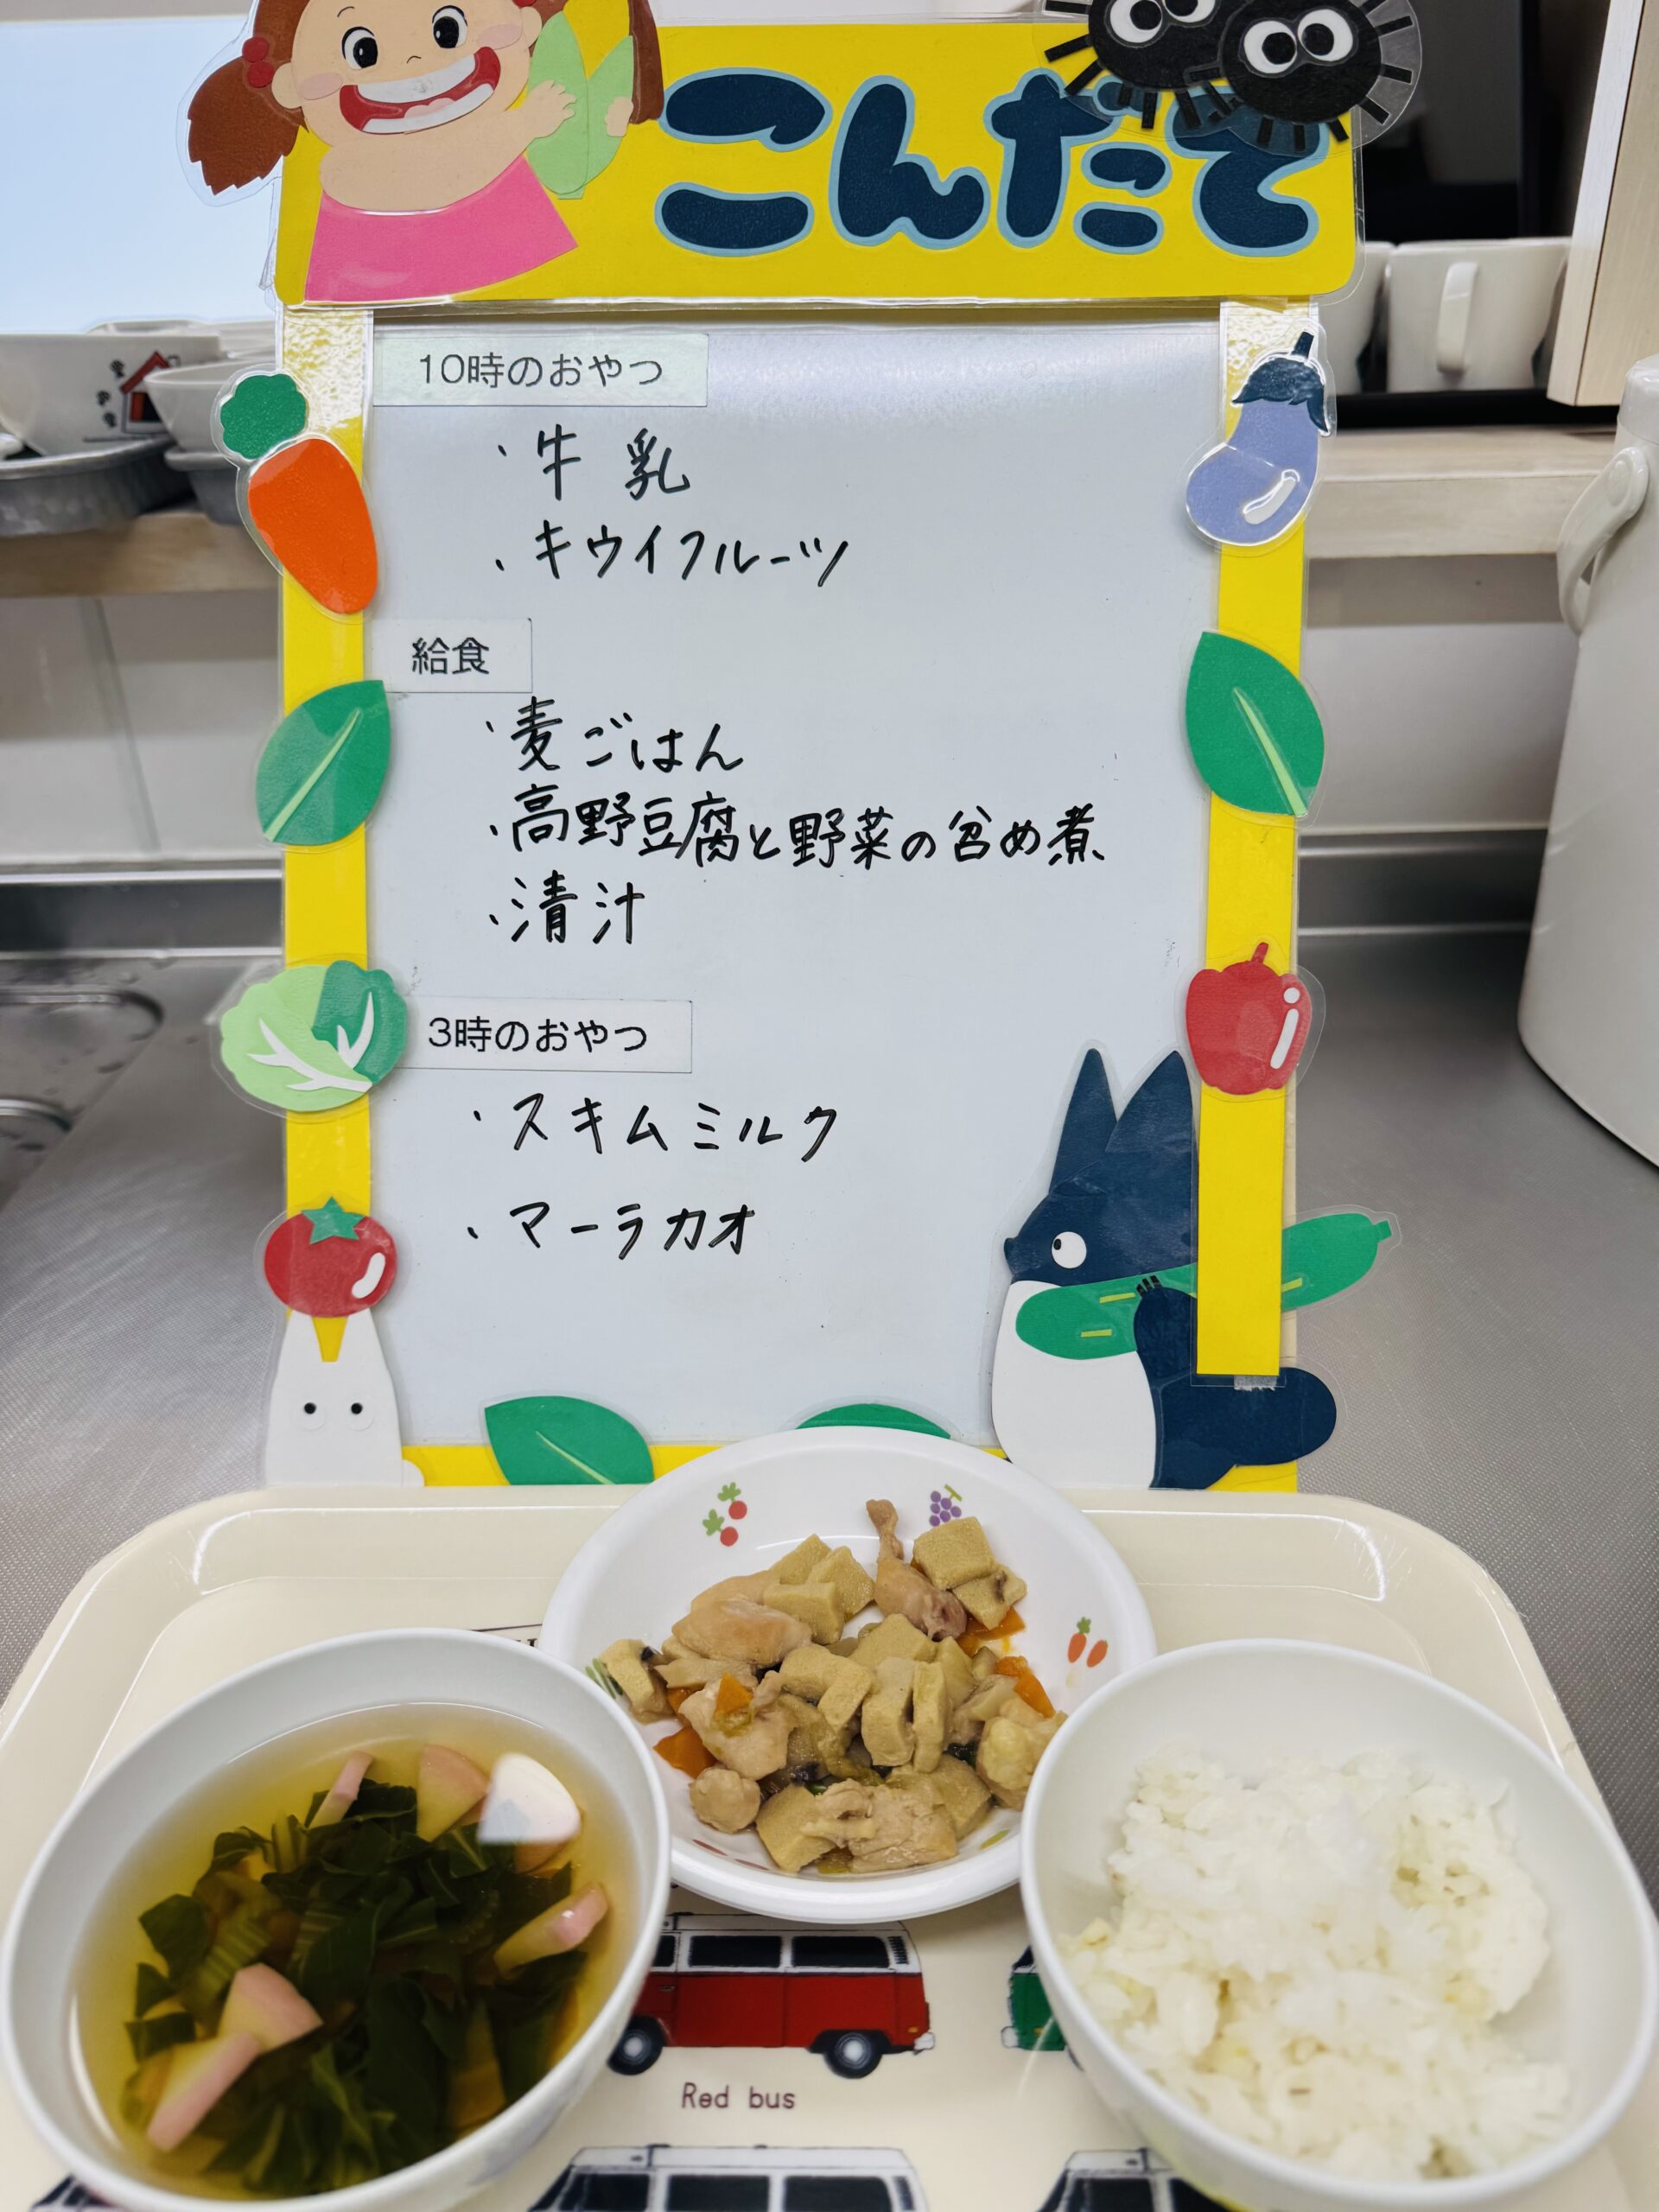 こんだて
10時のおやつ
・牛乳
・キウイフルーツ
給食
・麦ごはん
・高野豆腐と野菜の含め煮
・清汁
3時のおやつ
・スキムミルク
・マーラカオ
Red bus